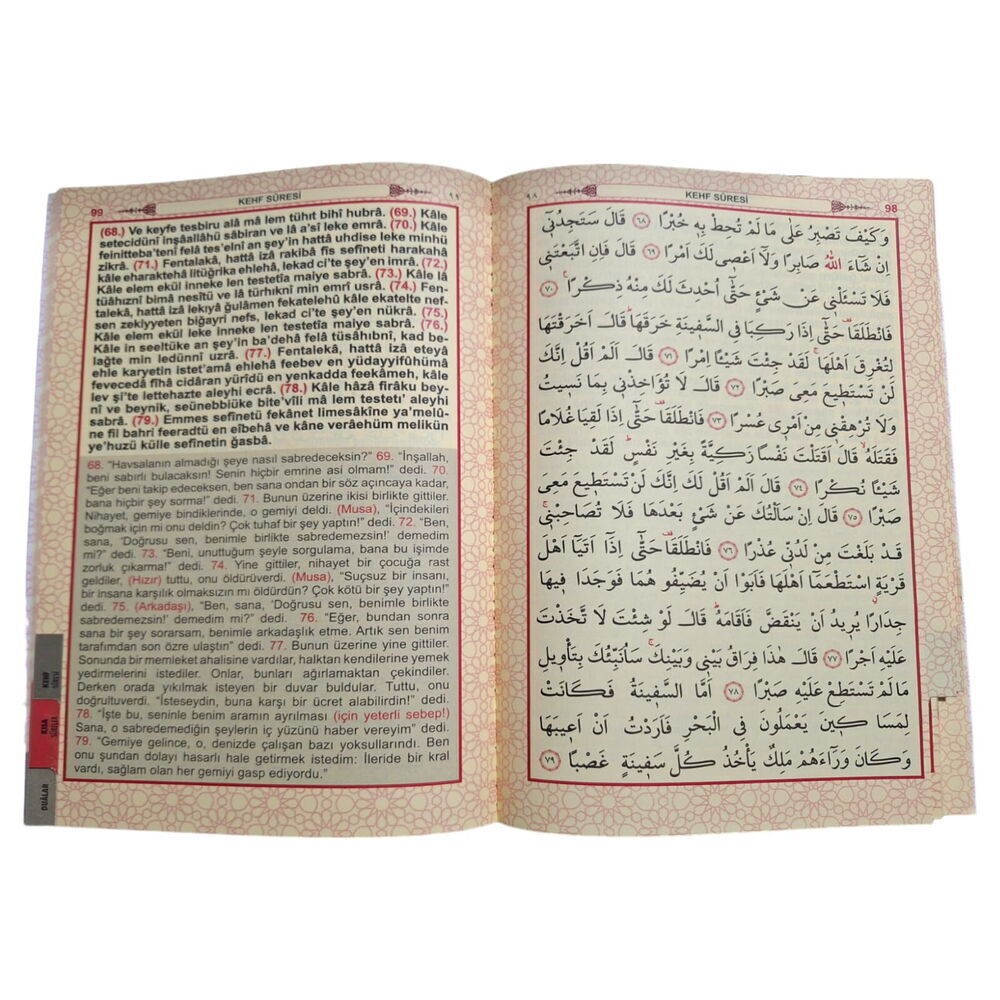 99 KEHF SÛRESİ ٩٩
(68.) Ve keyfe tesbiru alâ mâ lem tühıt bihî hubrâ. (69.) Kâle
setecidünî inşâallâhü sâbiran ve lâ a'sî leke emrâ. (70.) Kâle
feinitteba'tenî felâ tes'elnî an şey'in hattâ uhdise leke minhü
zikrâ. (71.) Fentalakâ, hattâ izâ rakibâ fis sefîneti harakahâ
kâle eharaktehâ litüğrika ehlehâ, lekad ci'te şey'en imrâ. (72.)
Kâle elem ekül inneke len testetîa maiye sabrâ. (73.) Kâle lâ
tüâhıznî bimâ nesîtü ve lâ türhıknî min emrî usrâ. (74.) Fen-
talekâ, hattâ izâ lekıyâ ğulâmen fekatelehû kâle ekatelte nef-
sen zekiyyeten biğayri nefs, lekad ci'te şey'en nükrâ. (75.)
Kâle elem ekül leke inneke len testetîa maiye sabrâ. (76.)
Kâle in seeltüke an şey'in ba'dehâ felâ tüsâhıbnî, kad be-
lağte min ledünnî uzrâ. (77.) Fentalekâ, hattâ izâ eteyâ
ehle karyetin istet'amâ ehlehâ feebev en yüdayyifûhümâ
fevecedâ fîhâ cidâran yürîdü en yenkadda feekâmeh, kâle
lev şi'te lettehazte aleyhi ecrâ. (78.) Kâle hâzâ firâku bey-
nî ve beynik, seünebbiüke bite'vîli mâ lem testetı' aleyhi
sabrâ. (79.) Emmes sefînetü fekânet limesâkîne ya'melû-
ne fil bahri feeradtü en eîbehâ ve kâne verâehüm melikün
ye'huzü külle sefînetin ğasbâ.
68. "Havsalanın almadığı şeye nasıl sabredeceksin?" 69. "İnşallah,
beni sabırlı bulacaksın! Senin hiçbir emrine asi olmam!" dedi. 70.
"Eğer beni takip edeceksen, ben sana ondan bir söz açıncaya kadar,
bana hiçbir şey sorma!" dedi. 71. Bunun üzerine ikisi birlikte gittiler.
Nihayet, gemiye bindiklerinde, o gemiyi deldi. (Musa), "İçindekileri
boğmak için mi onu deldin? Çok tuhaf bir şey yaptın!" dedi. 72. "Ben,
sana, 'Doğrusu sen, benimle birlikte sabredemezsin!' demedim
mi?" dedi. 73. "Beni, unuttuğum şeyle sorgulama, bana bu işimde
zorluk çıkarma!" dedi. 74. Yine gittiler, nihayet bir çocuğa rast
geldiler, (Hızır) tuttu, onu öldürüverdi. (Musa), "Suçsuz bir insanı,
bir insana karşılık olmaksızın mı öldürdün? Çok kötü bir şey yaptın!"
dedi. 75. (Arkadaşı), "Ben, sana, 'Doğrusu sen, benimle birlikte
sabredemezsin!' demedim mi?" dedi. 76. "Eğer, bundan sonra
sana bir şey sorarsam, benimle arkadaşlık etme. Artık sen benim
tarafımdan son özre ulaştın" dedi. 77. Bunun üzerine yine gittiler.
Sonunda bir memleket ahalisine vardılar, halktan kendilerine yemek
yedirmelerini istediler. Onlar, bunları ağırlamaktan çekindiler.
Derken orada yıkılmak isteyen bir duvar buldular. Tuttu, onu
doğrultuverdi. "İsteseydin, buna karşı bir ücret alabilirdin!" dedi.
78. "İşte bu, seninle benim aramın ayrılması (için yeterli sebep!)
Sana, o sabredemediğin şeylerin iç yüzünü haber vereyim" dedi.
79. "Gemiye gelince, o, denizde çalışan bazı yoksullarındı. Ben
onu şundan dolayı hasarlı hale getirmek istedim: İleride bir kral
vardı, sağlam olan her gemiyi gasp ediyordu."
KEHF
SÛRESİ
KISA
SÛRELER
DUÂLAR
٩٨ KEHF SÛRESİ 98
وَكَيْفَ تَصْبِرُ عَلٰى مَا لَمْ تُحِطْ بِهٖ خُبْرًا ﴿٦٨﴾ قَالَ سَتَجِدُنٖٓي
اِنْ شَٓاءَ اللّٰهُ صَابِرًا وَلَٓا اَعْصٖي لَكَ اَمْرًا ﴿٦٩﴾ قَالَ فَاِنِ اتَّبَعْتَنٖي
فَلَا تَسْـَٔلْنٖي عَنْ شَيْءٍ حَتّٰٓى اُحْدِثَ لَكَ مِنْهُ ذِكْرًا ﴿٧٠﴾
فَانْطَلَقَا حَتّٰٓى اِذَا رَكِبَا فِي السَّفٖينَةِ خَرَقَهَا قَالَ اَخَرَقْتَهَا
لِتُغْرِقَ اَهْلَهَا لَقَدْ جِئْتَ شَيْـًٔا اِمْرًا ﴿٧١﴾ قَالَ اَلَمْ اَقُلْ اِنَّكَ
لَنْ تَسْتَطٖيعَ مَعِيَ صَبْرًا ﴿٧٢﴾ قَالَ لَا تُؤَاخِذْنٖي بِمَا نَسٖيتُ
وَلَا تُرْهِقْنٖي مِنْ اَمْرٖي عُسْرًا ﴿٧٣﴾ فَانْطَلَقَا حَتّٰٓى اِذَا لَقِيَا غُلَامًا
فَقَتَلَهُ قَالَ اَقَتَلْتَ نَفْسًا زَكِيَّةً بِغَيْرِ نَفْسٍ لَقَدْ جِئْتَ
شَيْـًٔا نُكْرًا ﴿٧٤﴾ قَالَ اَلَمْ اَقُلْ لَكَ اِنَّكَ لَنْ تَسْتَطٖيعَ مَعِيَ
صَبْرًا ﴿٧٥﴾ قَالَ اِنْ سَاَلْتُكَ عَنْ شَيْءٍ بَعْدَهَا فَلَا تُصَاحِبْنٖي
قَدْ بَلَغْتَ مِنْ لَدُنّٖي عُذْرًا ﴿٧٦﴾ فَانْطَلَقَا حَتّٰٓى اِذَٓا اَتَيَٓا اَهْلَ
قَرْيَةٍ اسْتَطْعَمَٓا اَهْلَهَا فَاَبَوْا اَنْ يُضَيِّفُوهُمَا فَوَجَدَا فٖيهَا
جِدَارًا يُرٖيدُ اَنْ يَنْقَضَّ فَاَقَامَهُ قَالَ لَوْ شِئْتَ لَتَّخَذْتَ
عَلَيْهِ اَجْرًا ﴿٧٧﴾ قَالَ هٰذَا فِرَاقُ بَيْنٖي وَبَيْنِكَ سَاُنَبِّئُكَ بِتَأْوٖيلِ
مَا لَمْ تَسْتَطِعْ عَلَيْهِ صَبْرًا ﴿٧٨﴾ اَمَّا السَّفٖينَةُ فَكَانَتْ
لِمَسَاكٖينَ يَعْمَلُونَ فِي الْبَحْرِ فَاَرَدْتُ اَنْ اَعٖيبَهَا
وَكَانَ وَرَٓاءَهُمْ مَلِكٌ يَأْخُذُ كُلَّ سَفٖينَةٍ غَصْبًا ﴿٧٩﴾